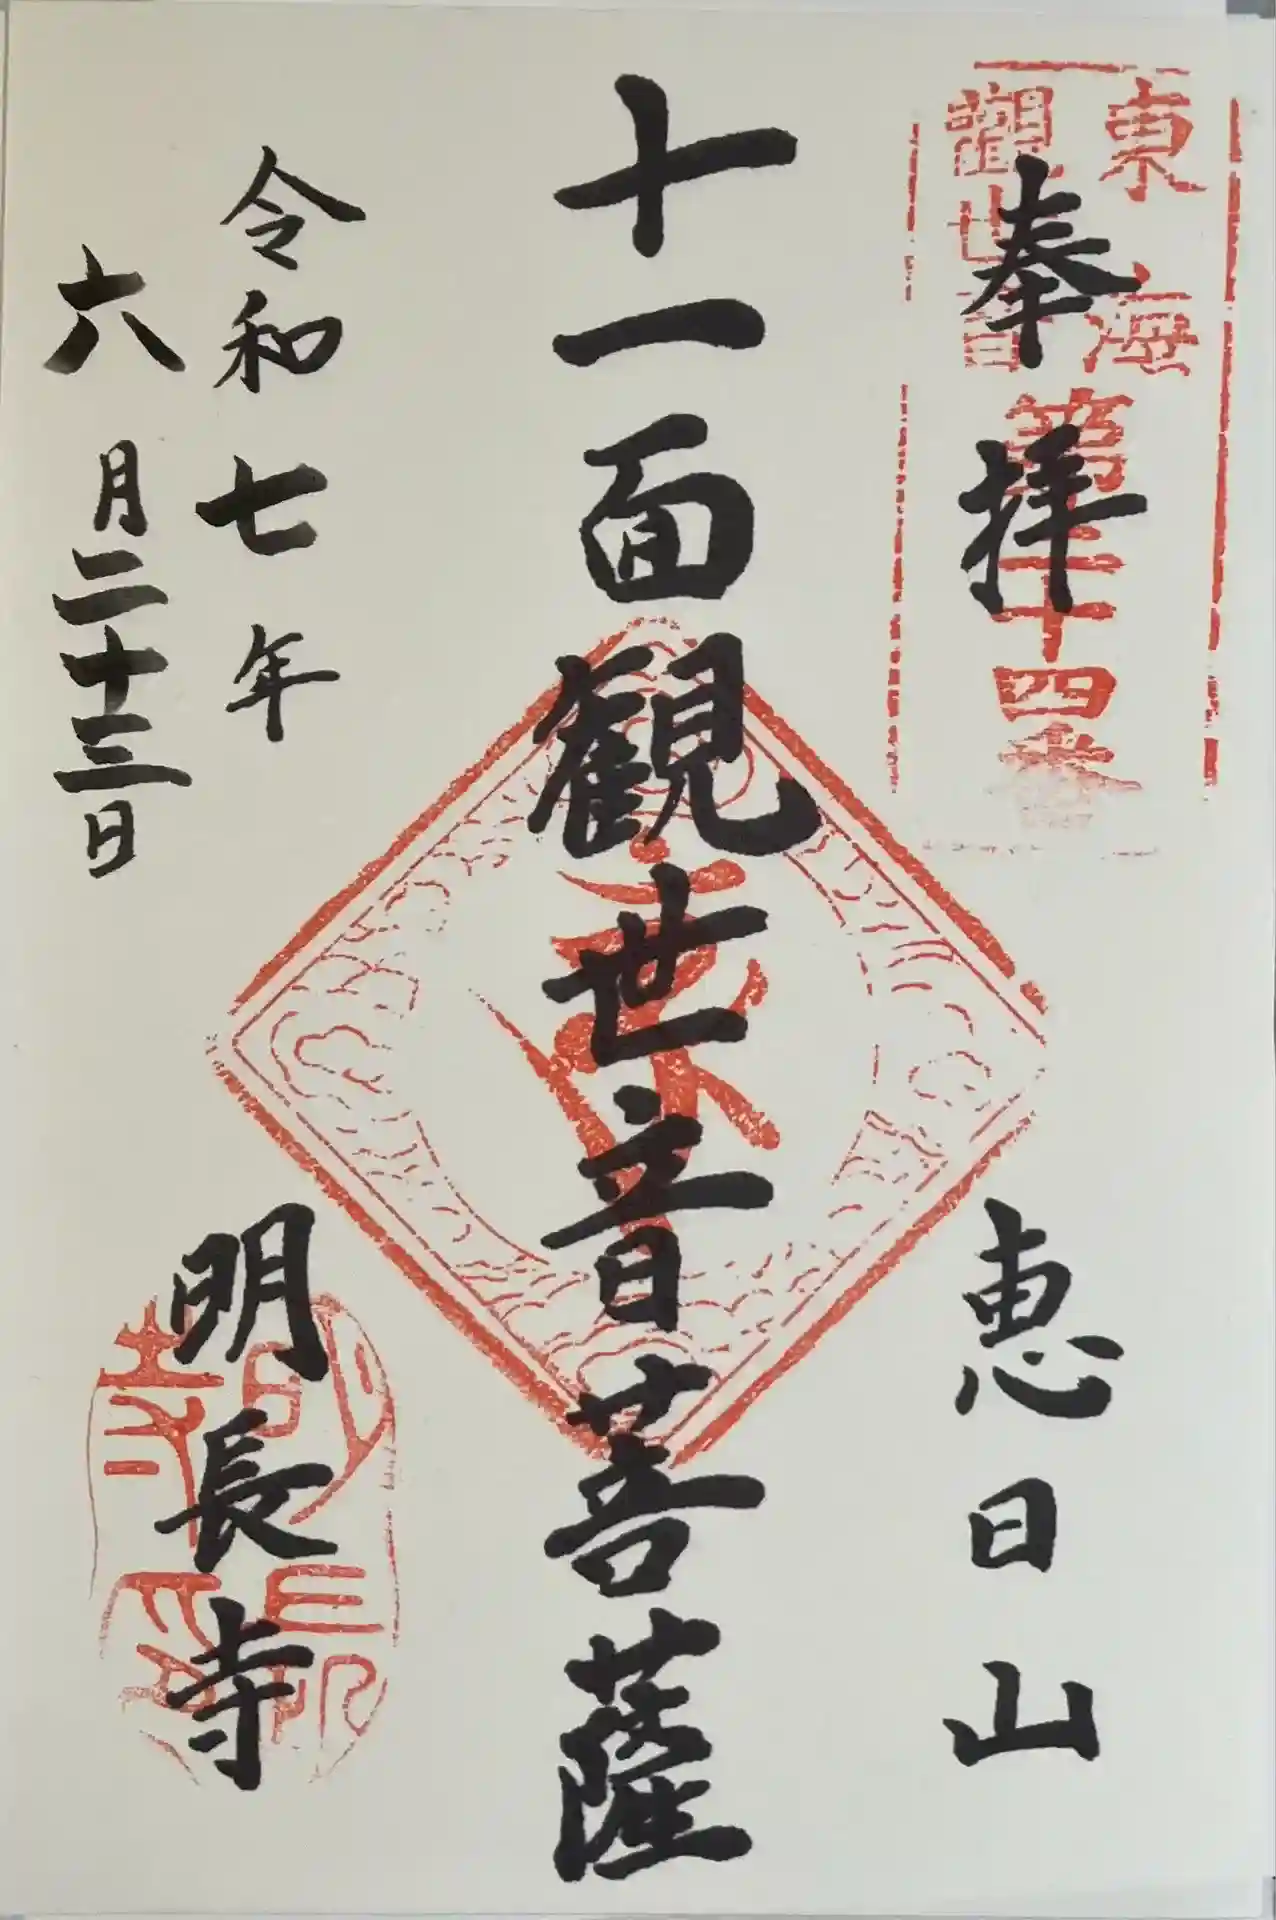 東海
觀世音
第二十四番
奉拝
恵日山
十一面観世音菩薩
令和七年
六月二十三日
明長寺